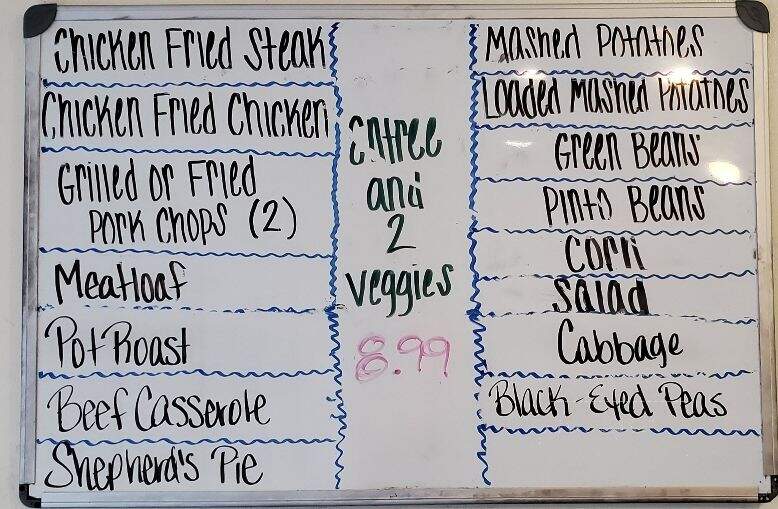 Chicken Fried Steak
Chicken Fried Chicken
Grilled or Fried
Pork Chops (2)
Meatloaf
Pot Roast
Beef Casserole
Shepherd's Pie
Entree
and
2
veggies
8.99
Mashed Potatoes
Loaded Mashed Potatoes
Green Beans
Pinto Beans
Corn
Salad
Cabbage
Black-Eyed Peas